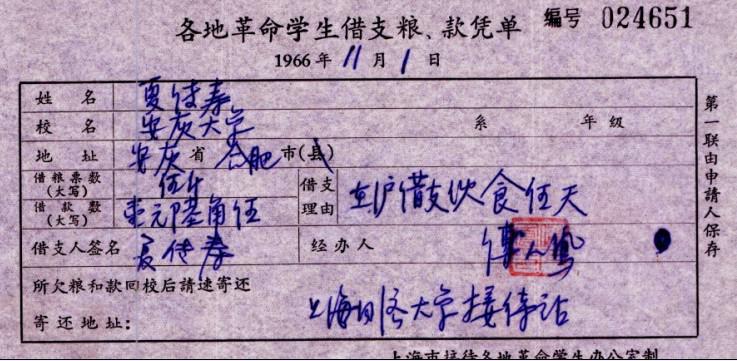 各地革命学生借支粮、款凭单 编号 024651
1966年 11月 1日
姓 名 夏传寿
校 名 安灰大学 系 年 级
地 址 安灰省 合肥市(县)
借粮票数(大写) 伍斤 借支理由 在沪借支伙食伍天
借款数(大写) 元 角伍
借支人签名 夏传寿 经办人
所欠粮和款回校后請速寄还
寄还地址: 上海 大学接待站
第一联由申請人保存
上海市接待各地革命学生办公室制